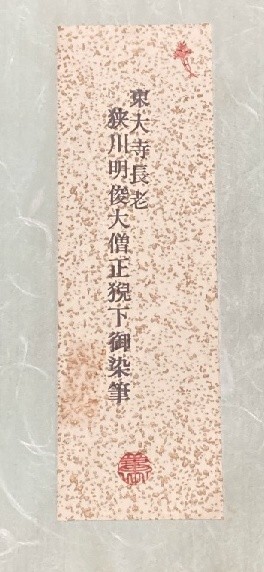 東大寺長老
狹川明俊大僧正猊下御染筆